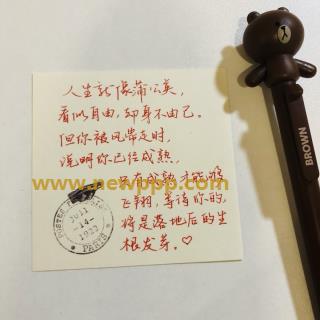 人生就像蒲公英，
看似自由，却身不由己。
但你被风带走时，
说明你已经成熟，
只有成熟才能够
飞翔，等待你的，
将是落地后的生
根发芽。♡
POSTES
JUIL
-14-
1922
PARIS
BROWN